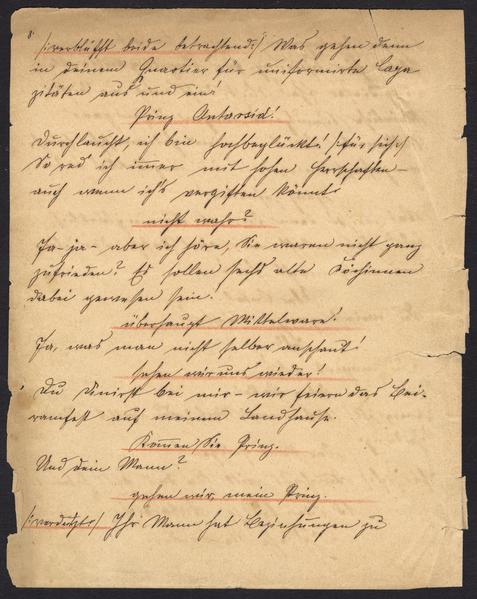 8.
/:verblüfft beide betrachtend:/ Was gehen denn
in deinem Quartier für uniformirte Capa
zitäten aus und ein!
Prinz
Durchlaucht, ich bin hochbeglückt! /:für sich:/
So red' ich immer mit hohen Herrschaften –
auch wenn ich's vergiften könnt!
nicht wahr?
Ja – ja – aber ich höre, Sie waren nicht ganz
zufrieden? Es sollen sechs alte Köchinnen
dabei gewesen sein.
überhaupt Mittelware!
Ja, was man nicht selber anschaut!
sehen wir uns wieder!
Du dinirst bei mir – wir feiern das Bei-
ramfest auf meinem Landhause.
Kommen Sie Prinz.
Und dein Mann?
gehen wir, mein Prinz.
Ihr Mann hat Beziehungen zu